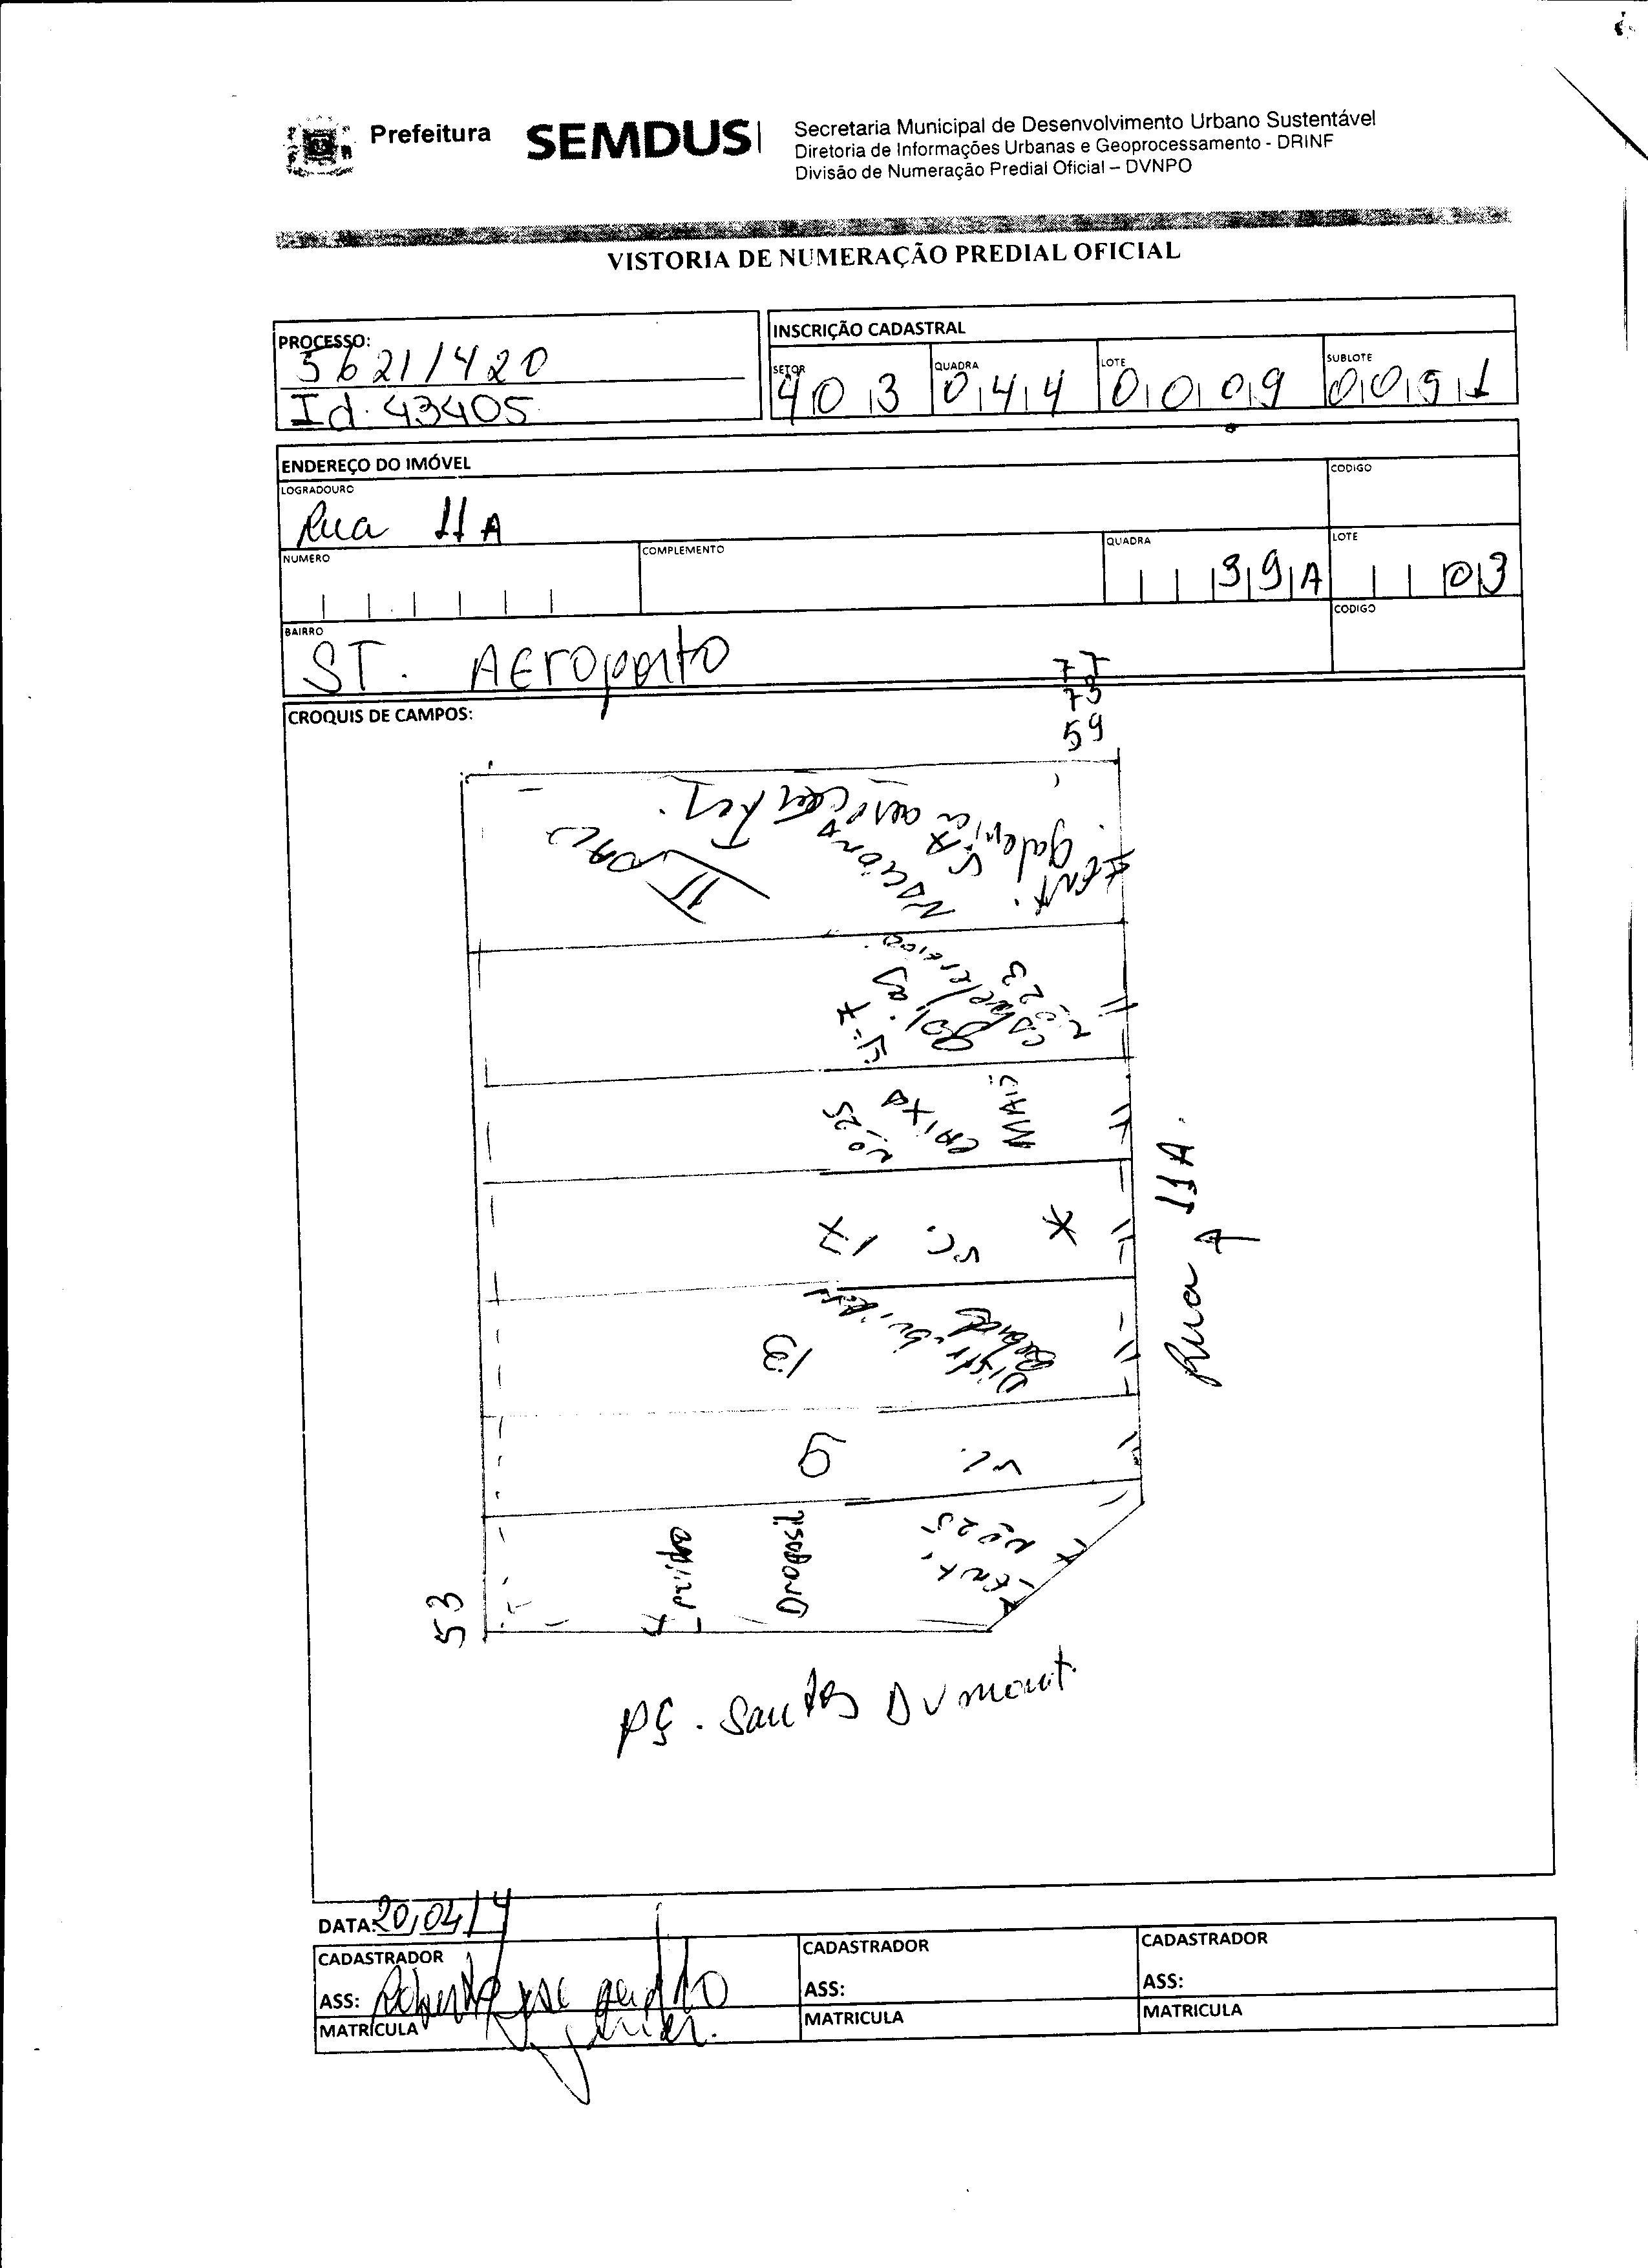 Prefeitura SEMDUS
Secretaria Municipal de Desenvolvimento Urbano Sustentável
Diretoria de Informações Urbanas e Geoprocessamento - DRINF
Divisão de Numeração Predial Oficial – DVNPO
VISTORIA DE NUMERAÇÃO PREDIAL OFICIAL
PROCESSO:
5621/420
Id. 43405
INSCRIÇÃO CADASTRAL
SETOR QUADRA LOTE SUBLOTE
403 044 0009 0091
ENDEREÇO DO IMÓVEL
LOGRADOURO CODIGO
Rua 11A
NUMERO COMPLEMENTO QUADRA LOTE
39A 03
BAIRRO CODIGO
ST. Aeroporto
77
73
59
CROQUIS DE CAMPOS:
II
galeria
Nacional
goiás
nº 23
MAIS
CAIXA
nº 25
17 VC. *
Distribuidora
13
5 VC.
nº 25
Ent.
prédio
Drogasil
Rua 11A.
53
PÇ. Santos Dumont
DATA: 20/04/
CADASTRADOR CADASTRADOR CADASTRADOR
ASS: ASS: ASS:
MATRICULA MATRICULA MATRICULA